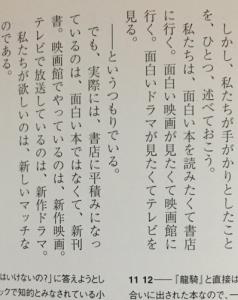 しかし、私たちが手がかりとしたこと
を、ひとつ、述べておこう。
私たちは、面白い本を読みたくて書店
に行く。面白い映画が見たくて映画館に
行く。面白いドラマが見たくてテレビを
見る。
――というつもりでいる。
でも、実際には、書店に平積みになっ
ているのは、面白い本ではなくて、新刊
書。映画館でやっているのは、新作映画。
テレビで放送しているのは、新作ドラマ。
私たちが欲しいのは、新しいマッチな
のである。
11 12――『龍騎』と直接は
合いに出された本なので、一
はいけないの?」に答えようとし
ックで知的とみなされている小